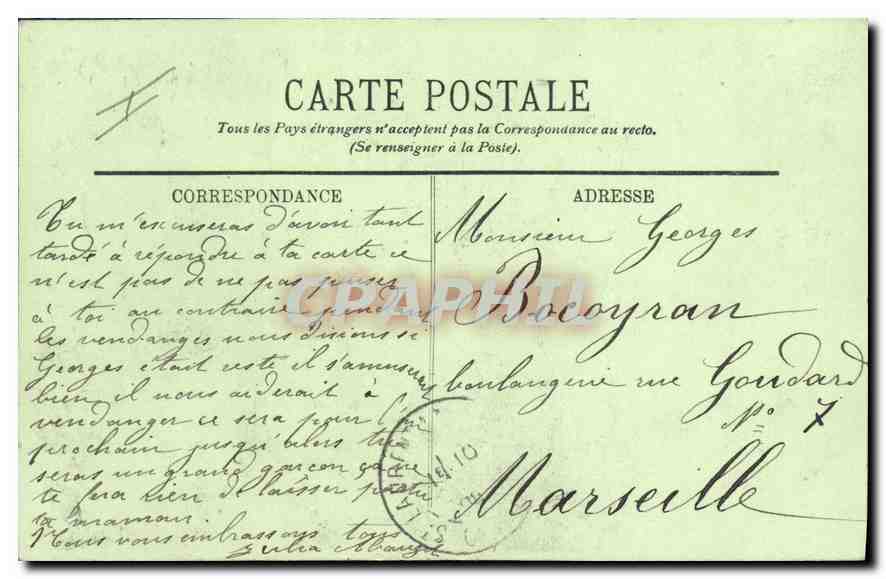 CARTE POSTALE
Tous les Pays étrangers n'acceptent pas la Correspondance au recto.
(Se renseigner à la Poste).
CORRESPONDANCE
Tu m'excuseras d'avoir tant
tardé à répondre à ta carte ce
n'est pas de ne pas penser
à toi au contraire pendant
les vendanges nous disions si
Georges était resté il s'amuserait
bien il nous aiderait à
vendanger ce sera pour l'
prochain jusqu'alors tu
seras un grand garçon ça ne
te fera rien de laisser
ta maman
Nous vous embrassons tous
Julia
ADRESSE
Monsieur Georges
Bocoyran
boulangerie rue Goudard
No 7
Marseille
CPAPHIL
ST LAURENT